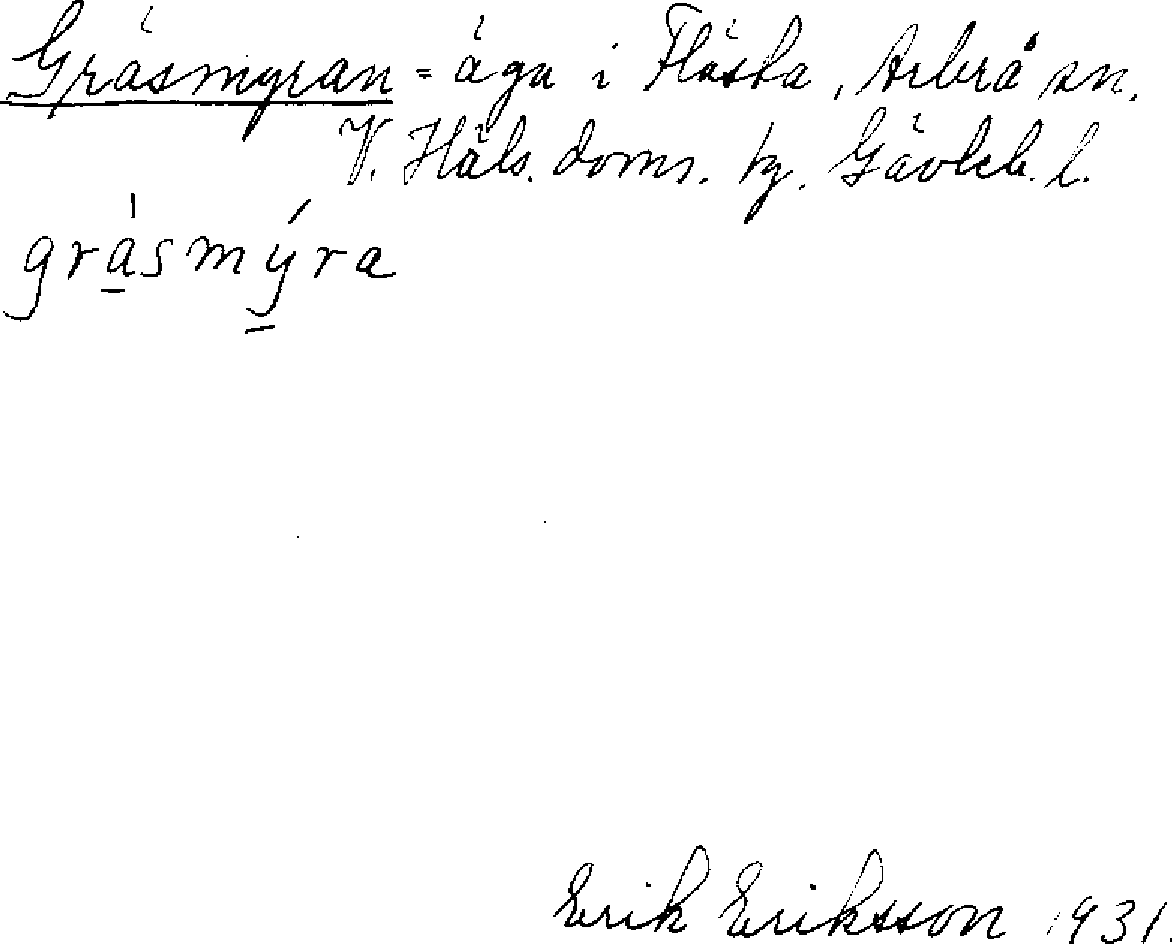 Gräsmyran = äga i Flästa, Arbrå sn.
V. Häls. doms. hg. Gävleb. l.
gräsmýra
Erik Eriksson 1931.